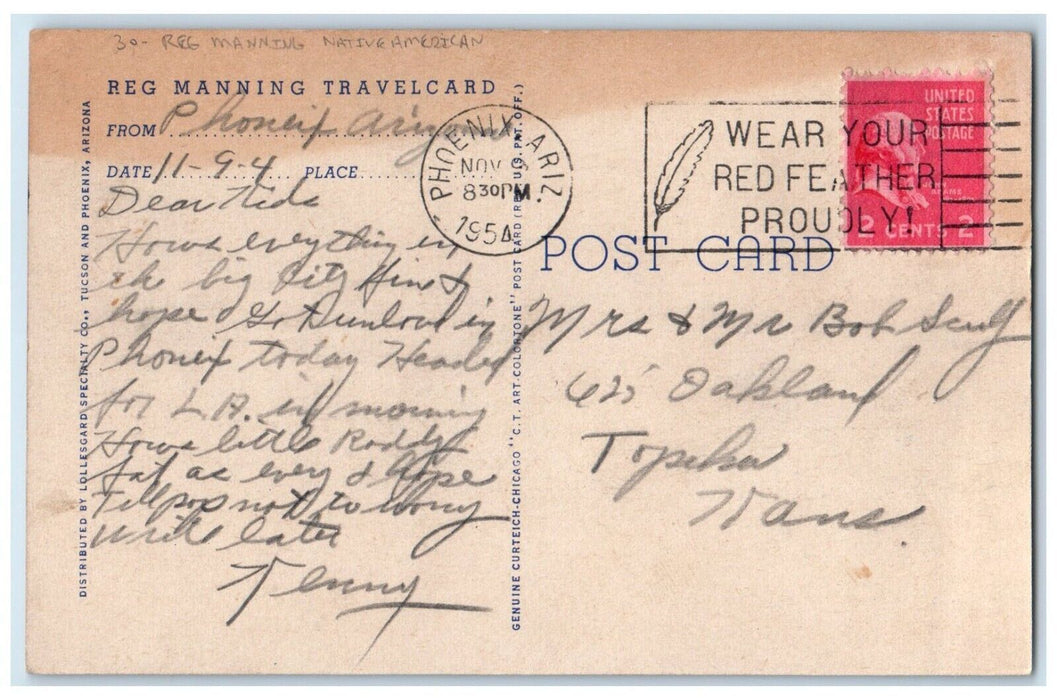 30- REG MANNING NATIVE AMERICAN
REG MANNING TRAVELCARD
FROM Phoneix Arizona
DATE 11-9-4 PLACE
Dear Kids
Hows everything in
the big City Fine I
hope Go Dunlove in
Phoneix today Headed
for L.A. in morning
Hows little Roddy
fat as every I hope
Tell pop not to worry
write later
Kenny
DISTRIBUTED BY LOLLESGARD SPECIALTY CO., TUCSON AND PHOENIX, ARIZONA
GENUINE CURTEICH-CHICAGO "C.T. ART-COLORTONE" POST CARD (REG. U.S. PAT. OFF.)
PHOENIX, ARIZ.
NOV
8 30 PM
1954
WEAR YOUR
RED FEATHER
PROUDLY!
UNITED
STATES
POSTAGE
JOHN
ADAMS
2 CENTS 2
POST CARD
Mrs & Mr Bob
625 Oakland
Topeka
Kans